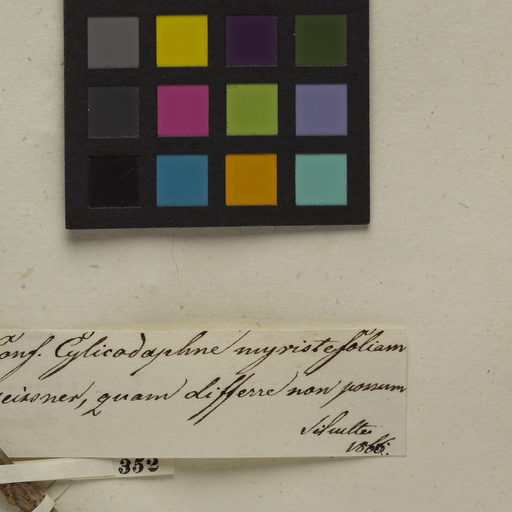 Conf. Cylicodaphne myristefoliam
eissner, quam differre non possum
1866.
352